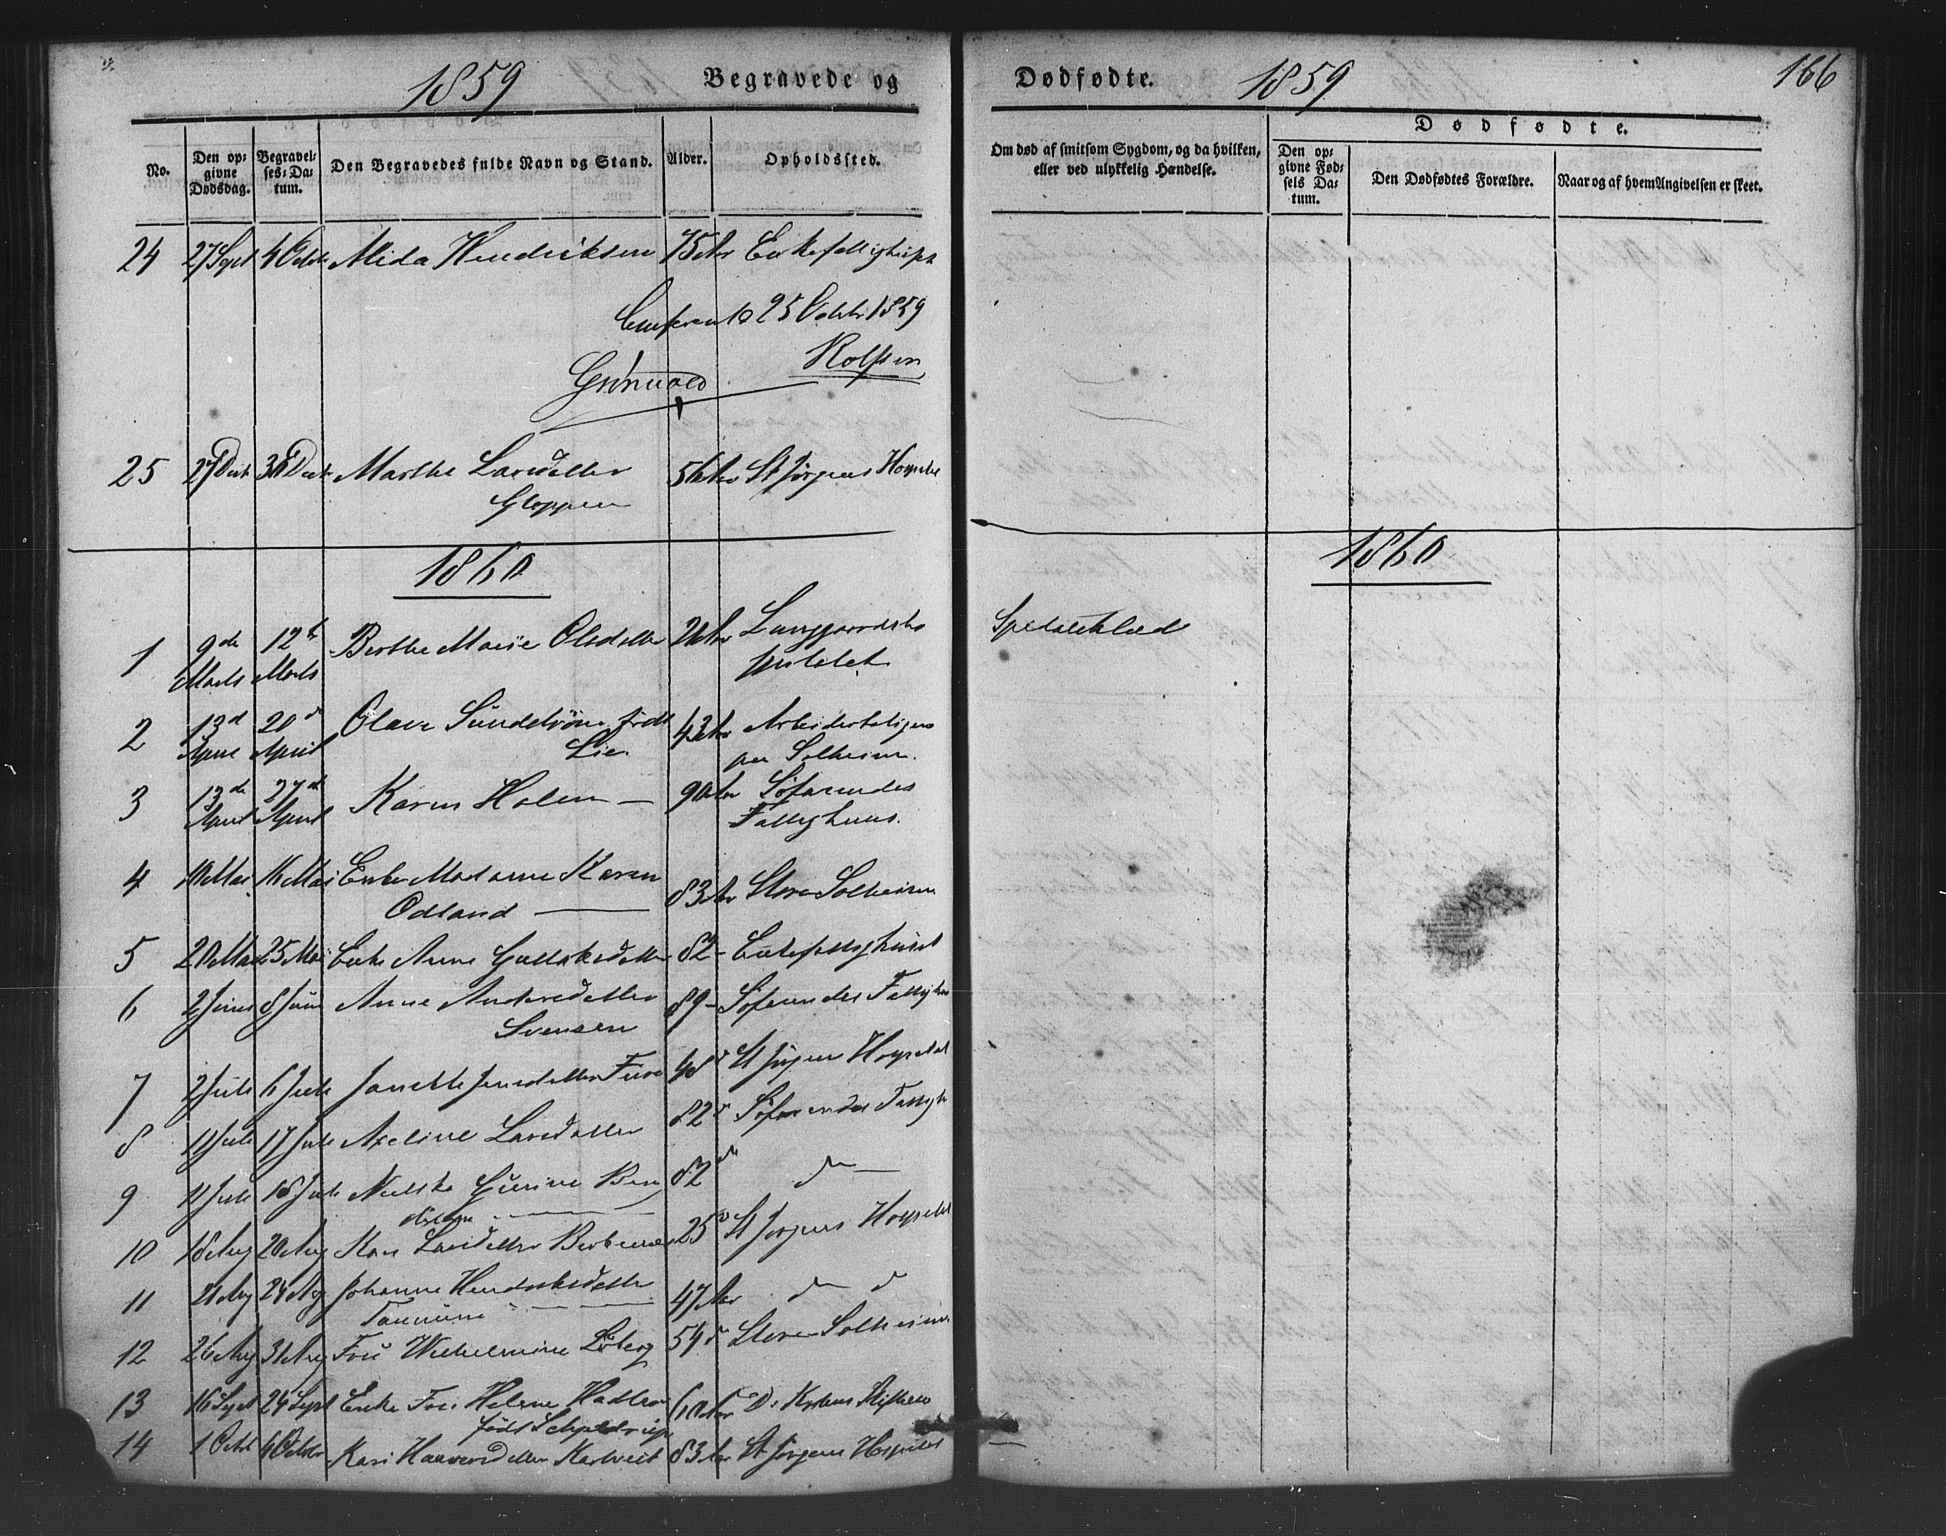 1859 Begravede og
No. Den opgivne Dødsdag. Begravelses-Datum. Den Begravedes fulde Navn og Stand. Alder. Opholdssted.
24 27 Sept 4 Octbr Alida Hendriksen 75 Aar
25 Octbr 1859
Rolfsen
Grønvold
25 27 Dec 31 Dec Marthe Larsdatter 56 Aar St Jørgens Hospital
Gloppen
1860
1 9de Marts 12te Marts Berthe Marie Olsdatter Lunggaardsho
spitalet
2 13d April 20d April Sundstrøm født 43 Aar Arbeiderboligen
Lie paa Solheim.
3 13de April 27d April Karen Holm — 90 Aar Søfarendes
Fattighuus.
4 10 Mai 16 Mai Enke Madame Karen 83 Aar Store Solheim
Odland —
5 20 Mai 25 Mai Enke Anne 82 - Enkefattighuset
6 2 Juni 8 Juni Anne Andersdatter 89 - Søfarendes Fattighus
Svensen
7 2 Juli 6 Juli Janikke Jensdatter Fure 48 d St Jørgens Hospital
8 11 Juli 17 Juli Axeline Larsdatter 82 d Søfarendes Fattigh
9 11 Juli 18 Juli Gurine Ben 82 do do —
10 18 Aug 20 Aug Kari Larsdatter 25 do St Jørgens Hospital
11 21 Aug 24 Aug Johanne Hendriksdatter 47 Aar do do
12 26 Aug 31 Aug Fru Wilhelmine Løberg 54 d Store Solheim
13 16 Sept 24 Sept Enke Fru Helene 60 Aar D: Stiftelse
født Schjeldrup
14 1 Oct 4 Octbr Kari Haavarsdatter 83 Aar St Jørgens Hospital
Dødfødte. 1859 166
Om død af smitsom Sygdom, og da hvilken, eller ved ulykkelig Hændelse. Dødfødte.
Den opgivne Fødsels Datum. Den Dødfødtes Forældre. Naar og af hvem Angivelsen er skeet.
1860
Spedalskhed